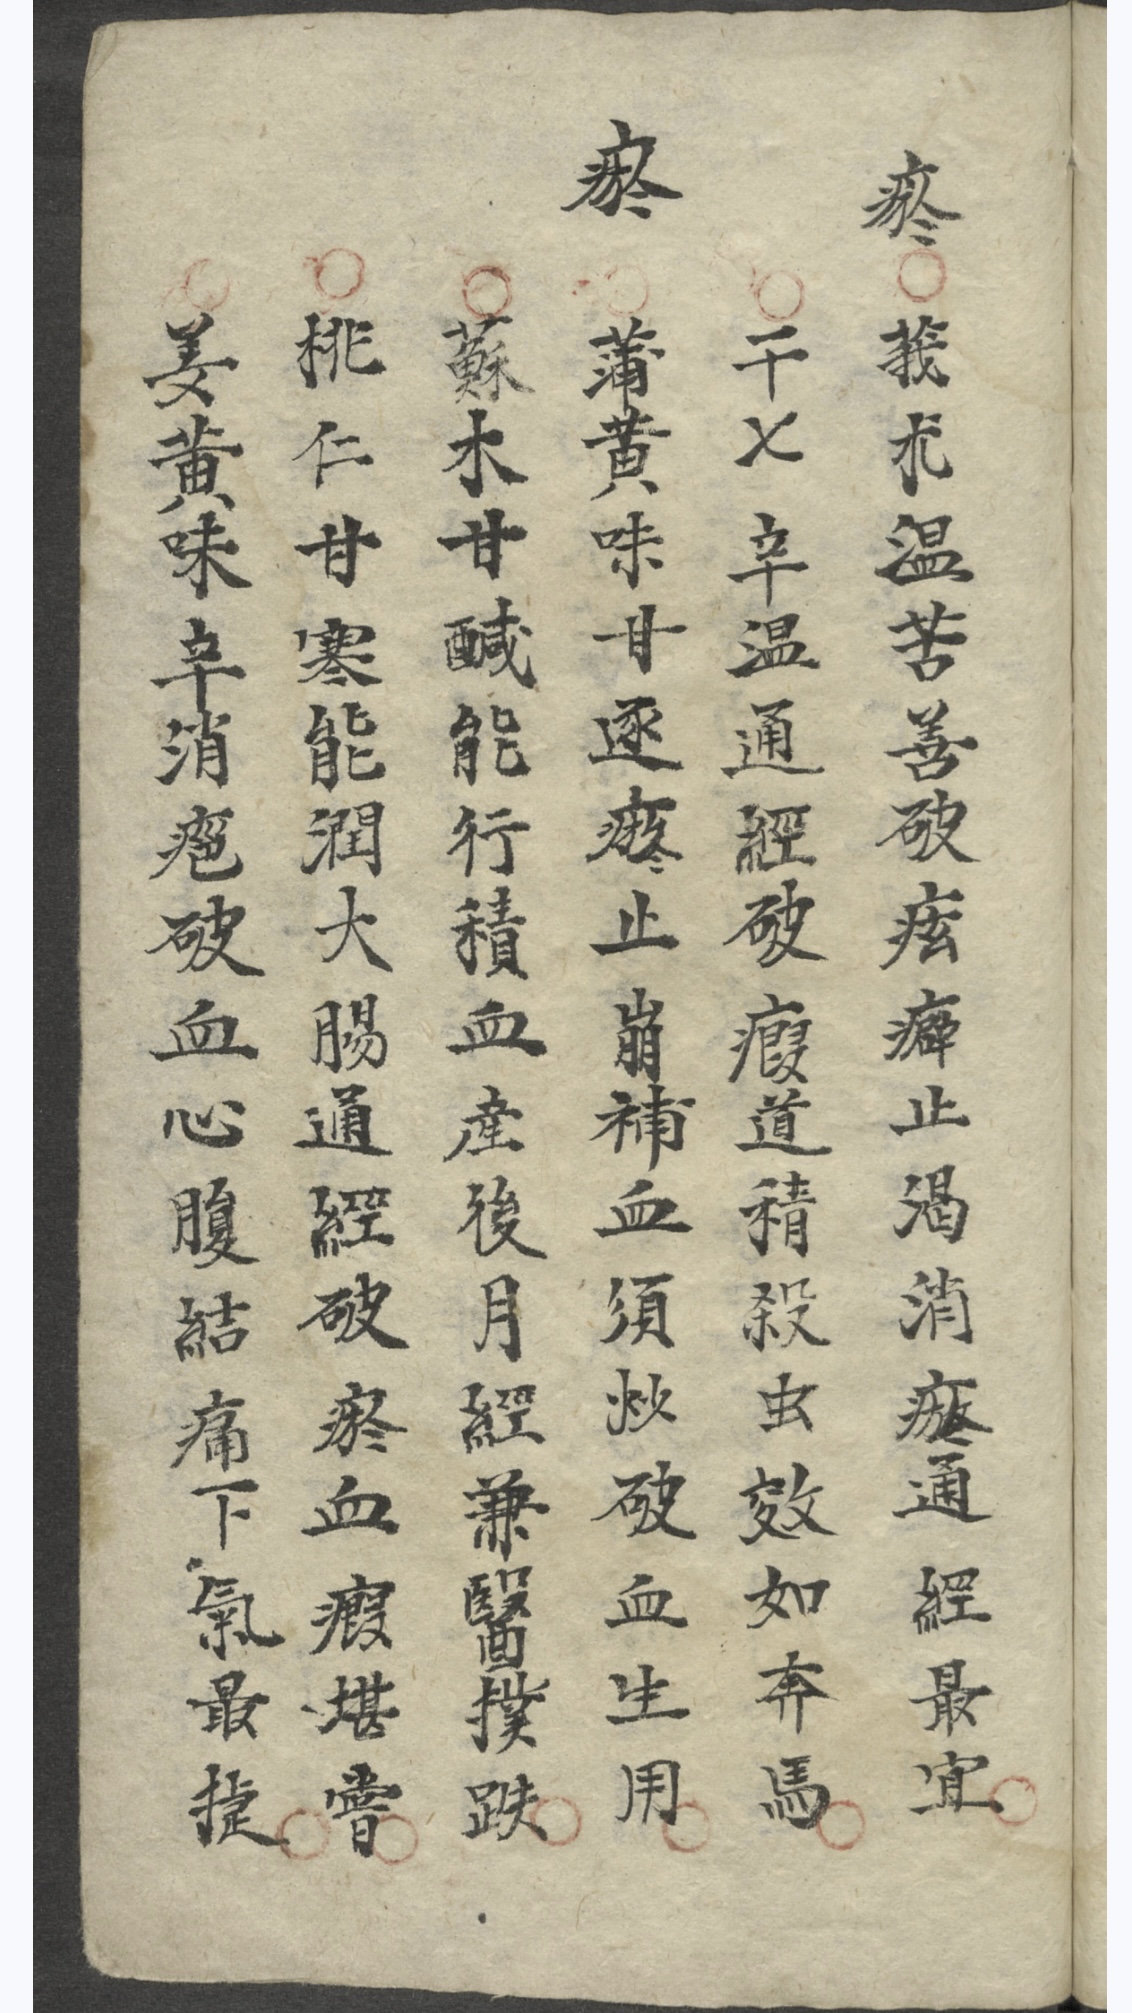 瘀
莪朮温苦善破痃癖止渴消瘀通經最宜
干七辛温通經破瘕道積殺虫效如奔馬
瘀
蒲黄味甘逐瘀止崩補血須炒破血生用
蘇木甘醎能行積血產後月經兼醫撲跌
桃仁甘寒能潤大腸通經破瘀血瘕堪嘗
姜黄味辛消疱破血心腹結痛下氣最捷